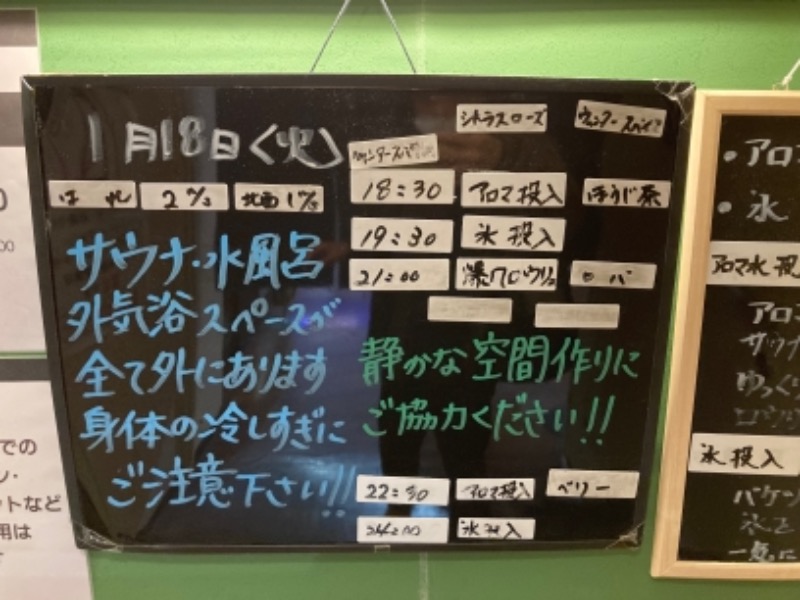 1月18日(火)
シトラスローズ
ウィンタースパイス
は れ
2 ℃
18:30 アロマ投入 ほうじ茶
19:30 氷 投入
21:00
サウナ・水風呂
外気浴スペースが
全て外にあります
身体の冷しすぎに
ご注意下さい!!
静かな空間作りに
ご協力ください!!
22:30 アロマ投入 ベリー
24:00 氷投入
・アロマ
・氷
アロマ水
アロ
サウナ
ゆっく
ロウリ
氷 投入
バケツ
氷を
一気に
での
ン・
ットなど
用は